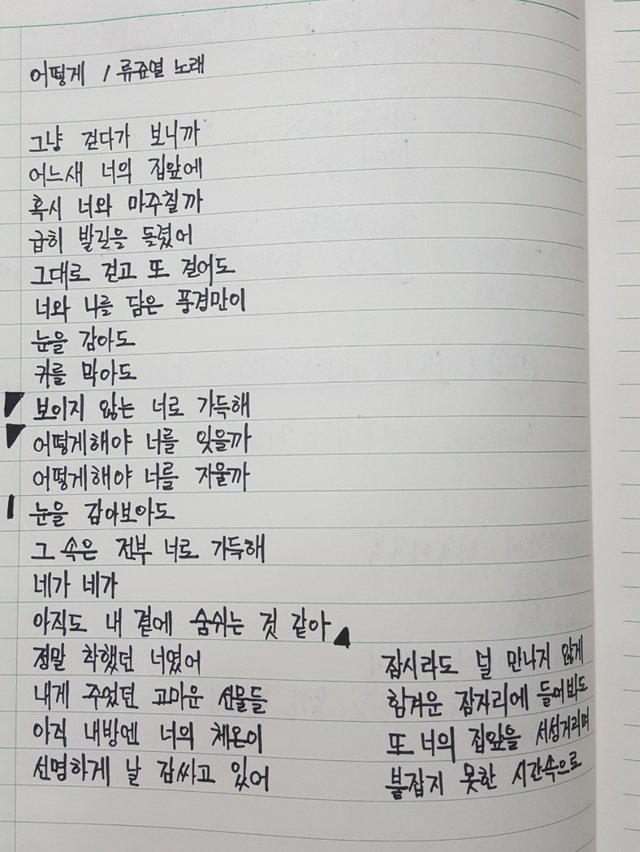 어떻게 / 류준열 노래
그냥 걷다가 보니까
어느새 너의 집앞에
혹시 너와 마주칠까
급히 발길을 돌렸어
그대로 걷고 또 걸어도
너와 나를 담은 풍경만이
눈을 감아도
귀를 막아도
보이지 않는 너로 가득해
어떻게해야 너를 잊을까
어떻게해야 너를 지울까
눈을 감아보아도
그 속은 전부 너로 가득해
네가 네가
아직도 내 곁에 숨쉬는 것 같아
정말 착했던 너였어
내게 주었던 고마운 선물들
아직 내방엔 너의 체온이
선명하게 날 감싸고 있어
잠시라도 널 만나지 않게
힘겨운 잠자리에 들어봐도
또 너의 집앞을 서성거리며
붙잡지 못한 시간속으로